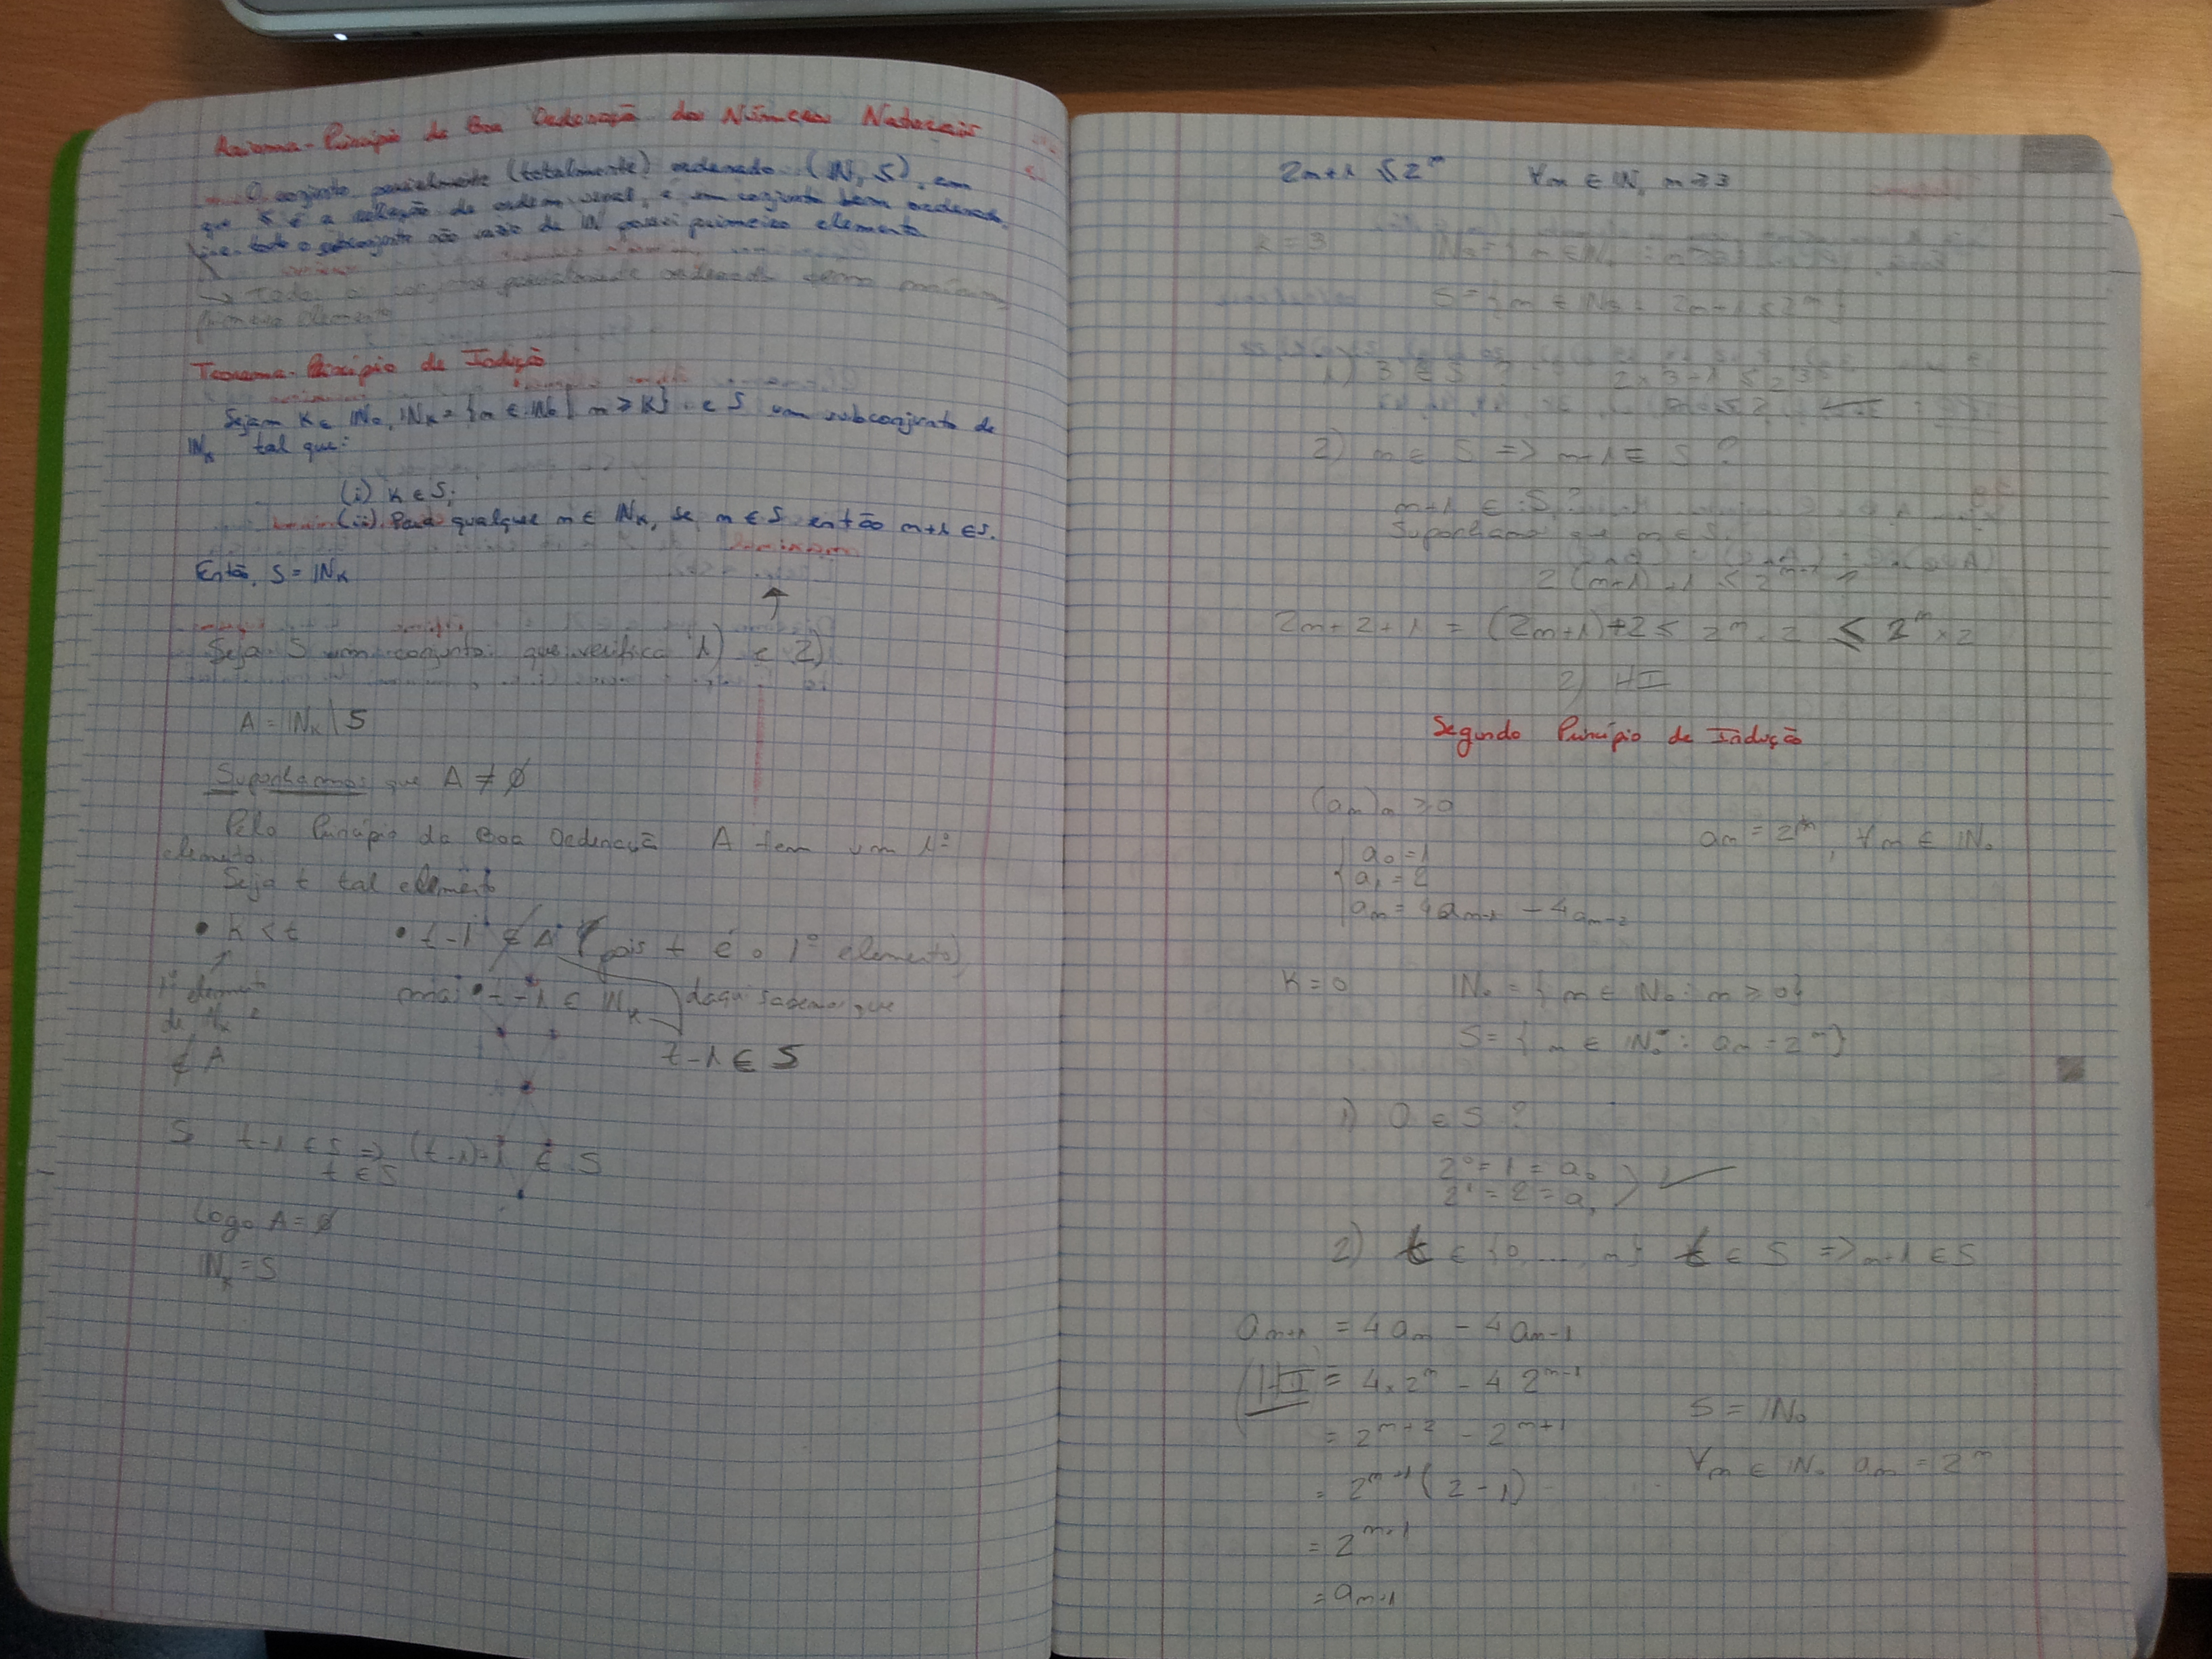 Axioma - Princípio de Boa Ordenação dos Números Naturais
O conjunto parcialmente (totalmente) ordenado (IN, ≤), em
que ≤ é a relação de ordem usual, é um conjunto bem ordenado,
i.e. todo o subconjunto não vazio de IN possui primeiro elemento
↳ Todo o conjunto parcialmente ordenado tem
primeiro elemento
Teorema - Princípio de Indução
Sejam K ∈ IN₀, INₖ = {m ∈ IN₀ | m ≥ K} e S um subconjunto de
INₖ tal que:
(i) K ∈ S;
(ii) Para qualquer m ∈ INₖ, se m ∈ S então m+1 ∈ S.
Então, S = INₖ
↑
Seja S um conjunto que verifica 1) e 2)
A = INₖ \ S
Suponhamos que A ≠ ∅
Pelo Princípio da Boa Ordenação A tem um 1º
elemento.
Seja t tal elemento
• K < t • t-1 ∉ A (pois t é o 1º elemento)
1º elemento mas t-1 ∈ INₖ daqui sabemos que
de INₖ
∉ A t-1 ∈ S
S t-1 ∈ S ⇒ (t-1)+1 ∈ S
t ∈ S
Logo A = ∅
INₖ = S
2m+1 ≤ 2ᵐ ∀m ∈ IN, m ≥ 3
K = 3
S = {m ∈ IN₃ : 2m+1 ≤ 2ᵐ}
1) 3 ∈ S ? 2×3+1 ≤ 2³
2) m ∈ S ⇒ m+1 ∈ S ?
m+1 ∈ S ?
Suponhamos que m ∈ S.
2(m+1)+1 ≤ 2ᵐ⁺¹ ?
2m+2+1 = (2m+1)+2 ≤ 2ᵐ+2 ≤ 2ᵐ×2
2) HI
Segundo Princípio de Indução
(aₘ)ₘ ≥ 0
aₘ = 2ᵐ, ∀m ∈ IN₀
a₀ = 1
a₁ = 2
aₘ = 4aₘ₋₁ - 4aₘ₋₂
K = 0 IN₀ = {m ∈ IN₀ : m ≥ 0}
S = {m ∈ IN₀ : aₘ = 2ᵐ}
1) 0 ∈ S ?
2⁰ = 1 = a₀
2¹ = 2 = a₁ ✓
2) t ∈ {0, ..., m} t ∈ S ⇒ m+1 ∈ S
aₘ₊₁ = 4aₘ - 4aₘ₋₁
(HI) = 4×2ᵐ - 4 2ᵐ⁻¹
= 2ᵐ⁺² - 2ᵐ⁺¹
= 2ᵐ⁺¹(2-1)
= 2ᵐ⁺¹
= aₘ₊₁
S = IN₀
∀m ∈ IN₀ aₘ = 2ᵐ